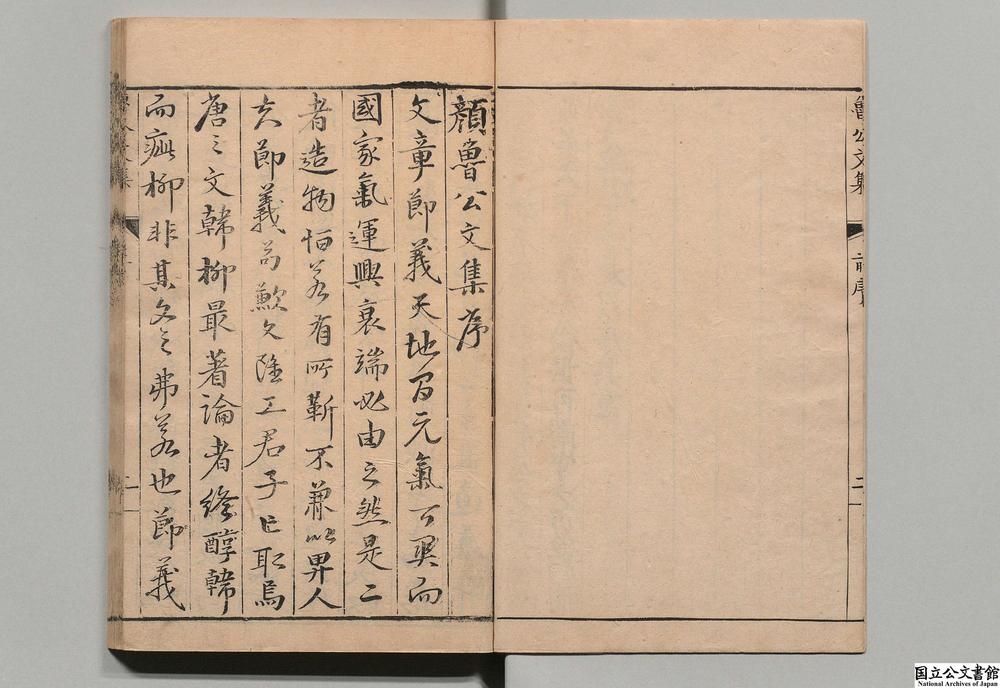 魯公文集
前序
二
顏魯公文集序
文章節義天地間元氣而
國家氣運興衰端必由之然是二
者造物恒若有所靳不兼以畀人
夫節義苟歉文雖工君子取焉
唐之文韓柳最著論者終醇韓
而疵柳非其文之弗若也節義
国立公文書館
National Archives of Japan